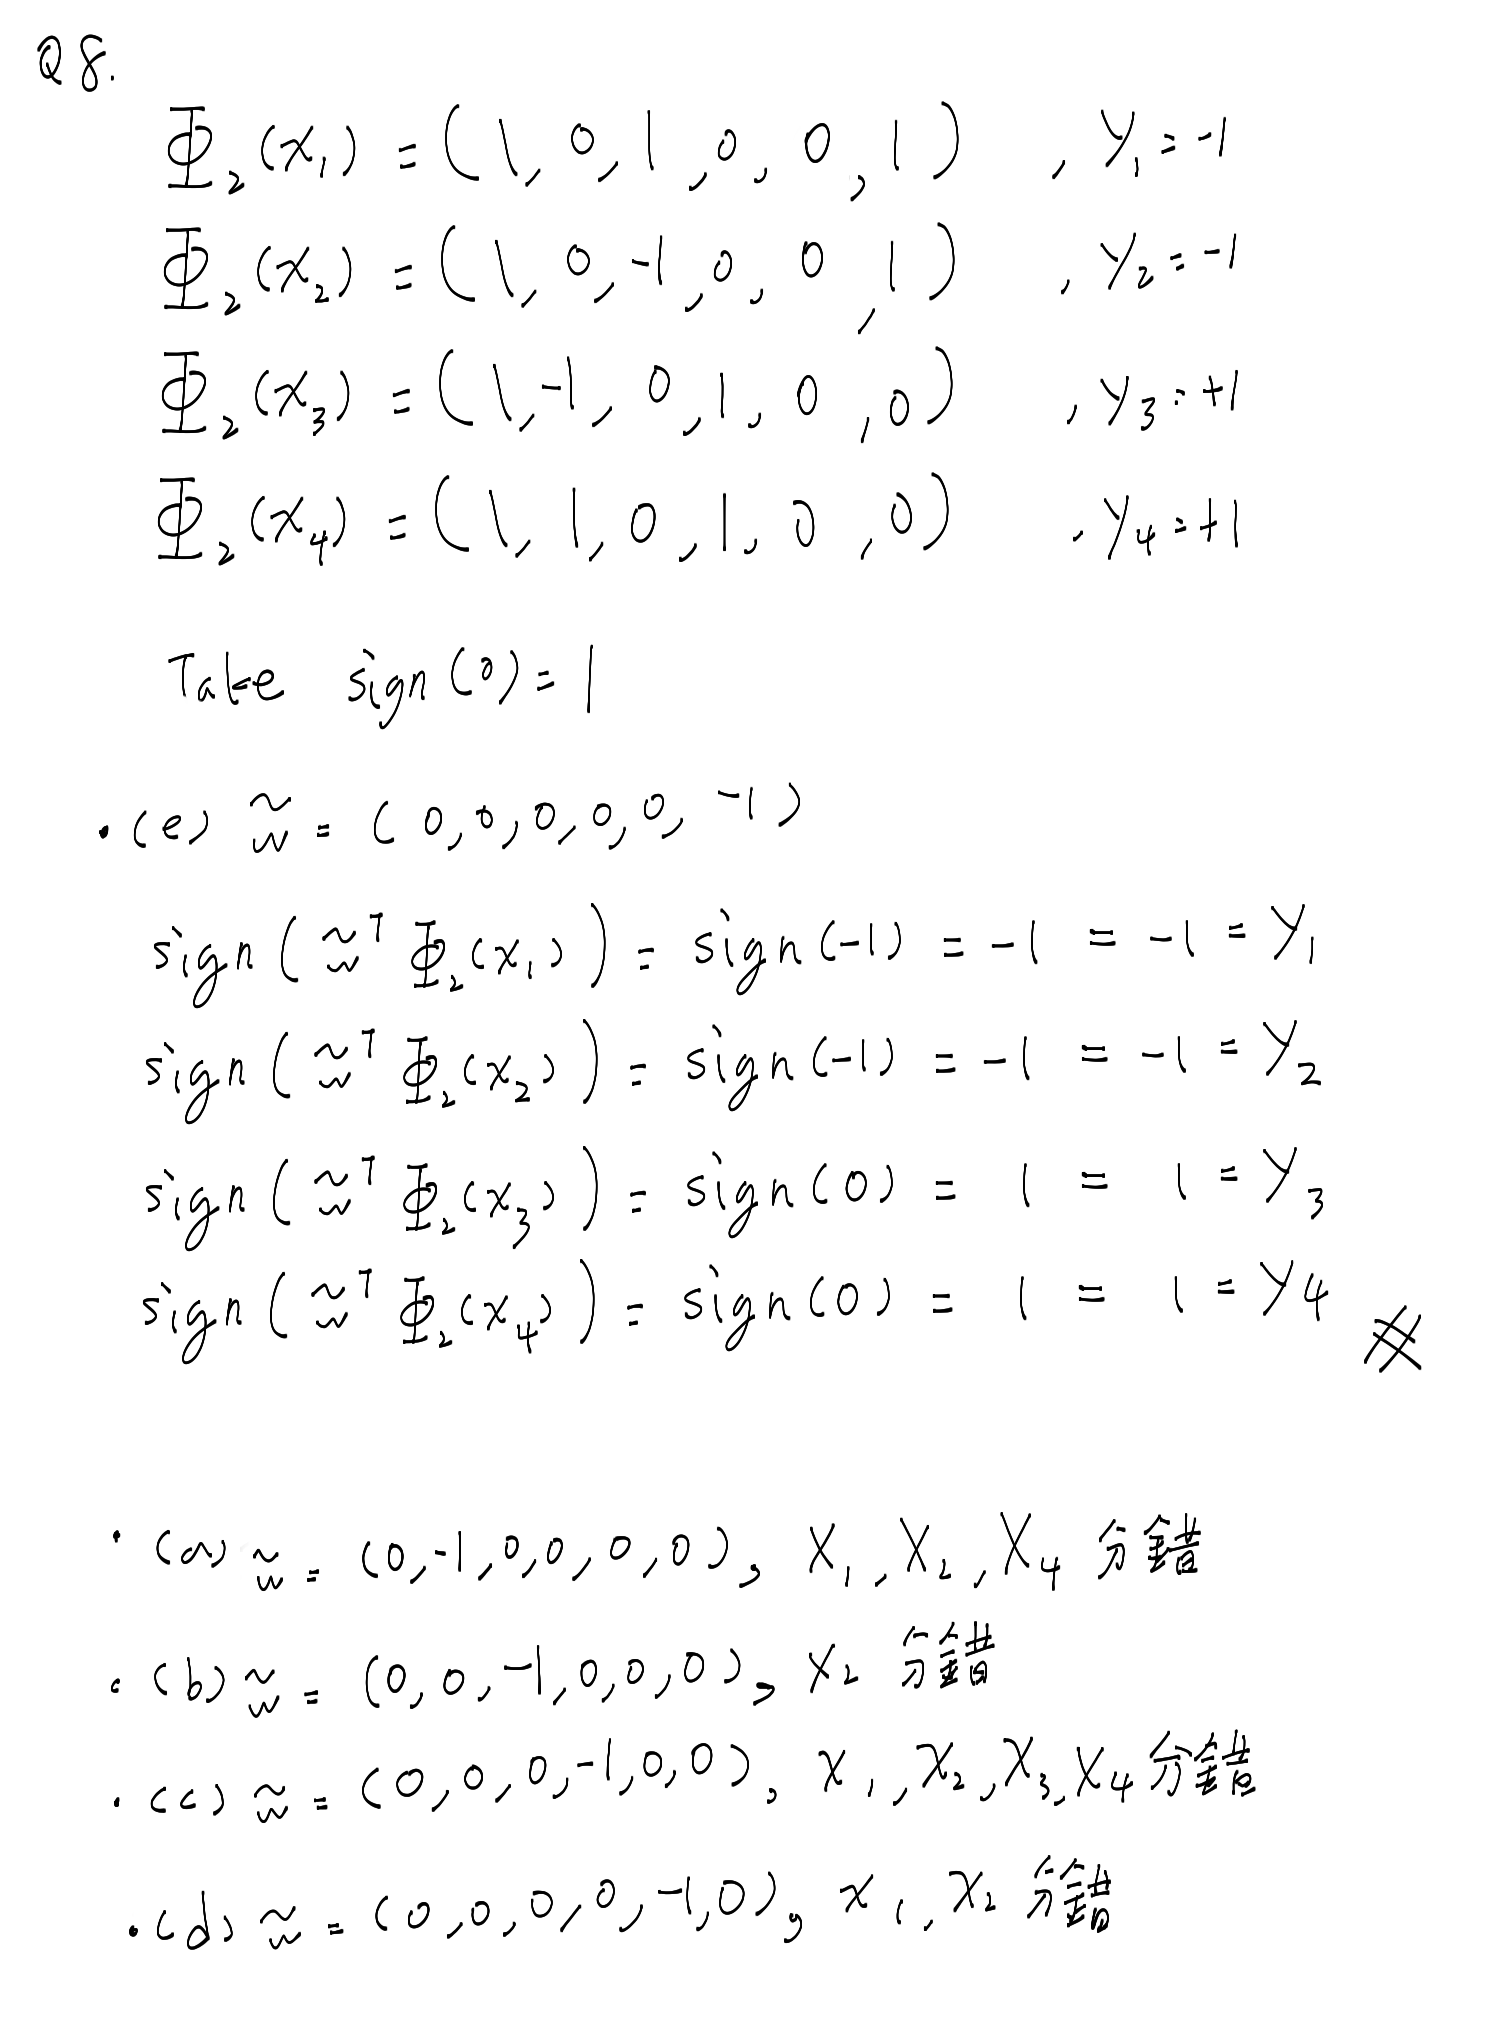 Q8.
Φ₂(x₁) = (1, 0, 1, 0, 0, 1) , y₁ = -1
Φ₂(x₂) = (1, 0, -1, 0, 0, 1) , y₂ = -1
Φ₂(x₃) = (1, -1, 0, 1, 0, 0) , y₃ = +1
Φ₂(x₄) = (1, 1, 0, 1, 0, 0) , y₄ = +1
Take sign(0) = 1
· (e) w̃ = (0, 0, 0, 0, 0, -1)
sign(w̃ᵀ Φ₂(x₁)) = sign(-1) = -1 = -1 = y₁
sign(w̃ᵀ Φ₂(x₂)) = sign(-1) = -1 = -1 = y₂
sign(w̃ᵀ Φ₂(x₃)) = sign(0) = 1 = 1 = y₃
sign(w̃ᵀ Φ₂(x₄)) = sign(0) = 1 = 1 = y₄ #
· (a) w̃ = (0, -1, 0, 0, 0, 0), x₁, x₂, x₄ 分錯
· (b) w̃ = (0, 0, -1, 0, 0, 0), x₂ 分錯
· (c) w̃ = (0, 0, 0, -1, 0, 0), x₁, x₂, x₃, x₄ 分錯
· (d) w̃ = (0, 0, 0, 0, -1, 0), x₁, x₂ 分錯